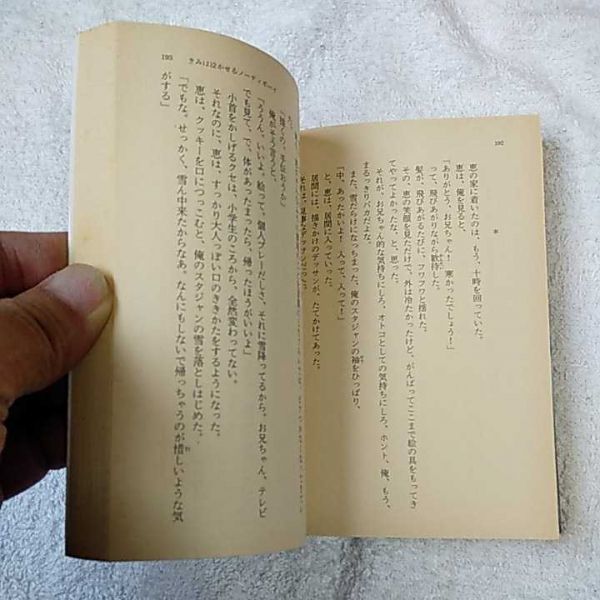 192
＊
恵の家に着いたのは、もう、十時を回っていた。
恵は、俺を見ると、
「ありがとう、お兄ちゃん！　寒かったでしょう！」
って、飛びあがりながら歓待した。
髪が、飛びあがるたびに、フワフワと揺れた。
その、恵の笑顔を見ただけで、外は冷たかったけど、がんばってここまで絵の具をもってき
てやってよかったな、と、思った。
それが、お兄ちゃん的な気持ちにしろ、オトコとしての気持ちにしろ、ホント、俺、もう、
まるっきりバカだよな。
また、雪だらけになっちまった、俺のスタジャンの袖をひっぱり、
「中、あったかいよ！　入って、入って！」
と、恵は、居間に入っていった。
居間には、描きかけのデッサンが、たてかけてあった。
それは、見事なデッサンだった。
193　きみは泣かせるノーティボーイ
「描くの、手伝おうか」
俺がそう言うと、
「ううん、いいよ。絵って、個人プレーだしさ、それに雪降ってるから。お兄ちゃん、テレビ
でも見て、で、体があったまったら、帰ったほうがいいよ」
小首をかしげるクセは、小学生のころから、全然変わってない。
それなのに、恵は、すっかり大人っぽい口のききかたをするようになった。
恵は、クッキーを口につっこむと、俺のスタジャンの雪を落としはじめた。
「でもな。せっかく、雪ん中来たからなあ。なんにもしないで帰っちゃうのが惜しいような気
がする」